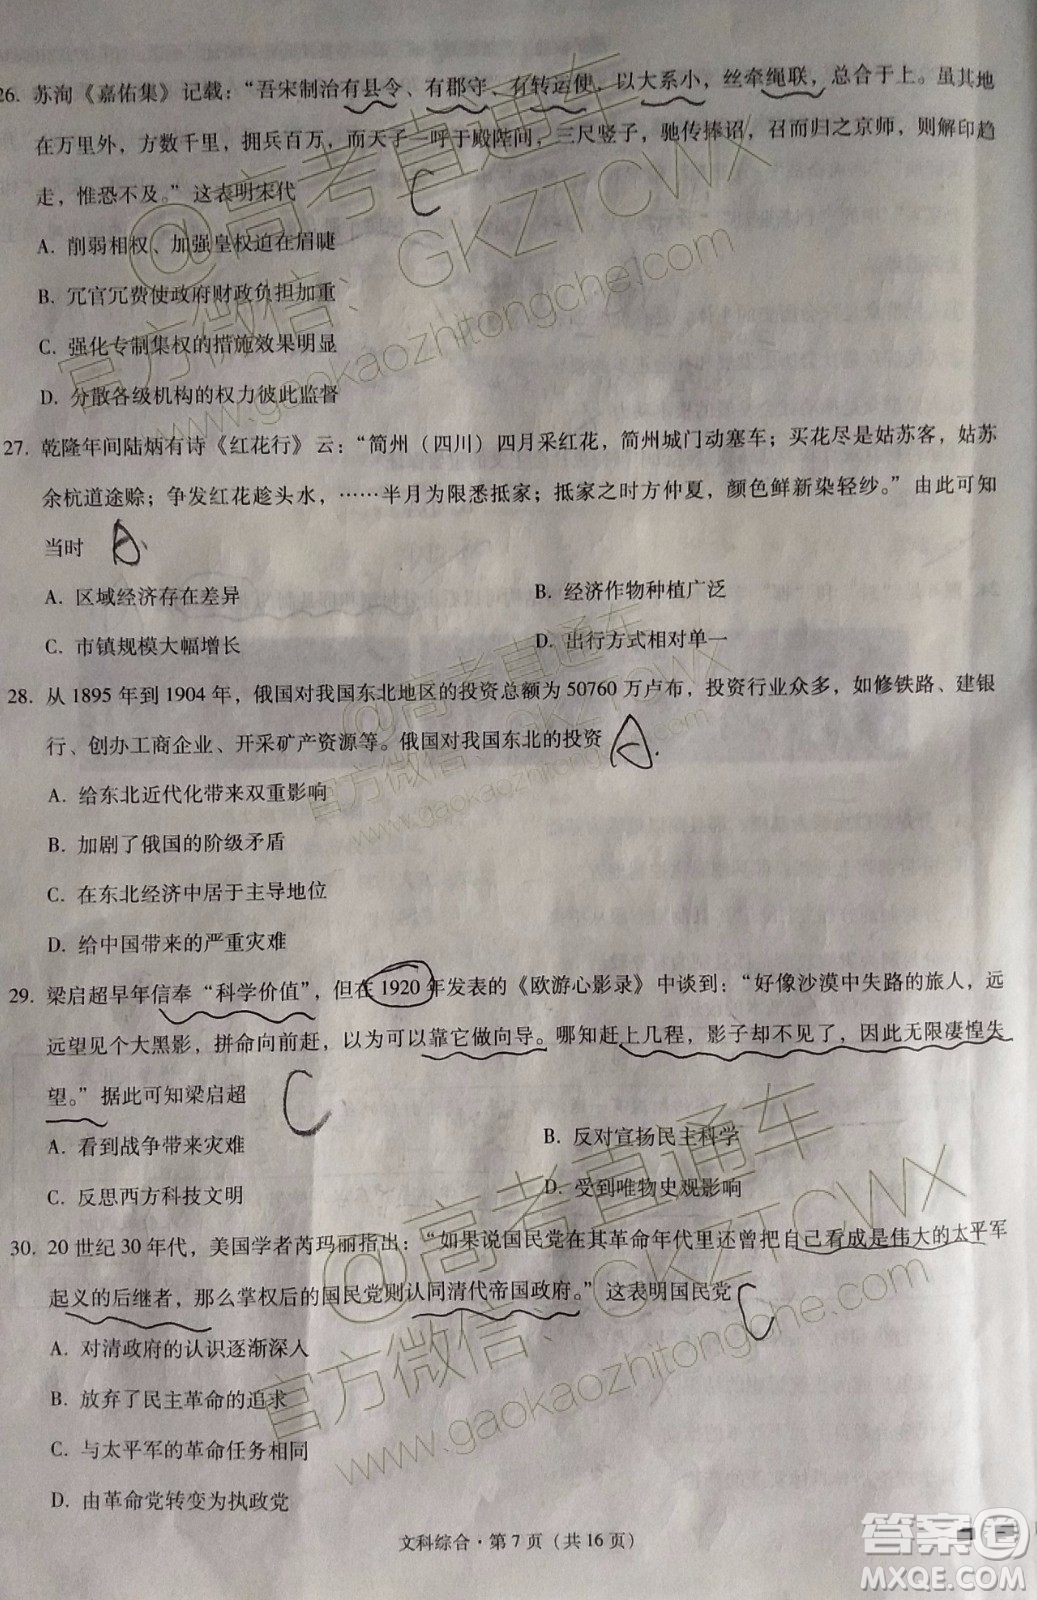 26. 苏洵《嘉佑集》记载：“吾宋制治有县令、有郡守、有转运使，以大系小，丝牵绳联，总合于上。虽其地
在万里外，方数千里，拥兵百万，而天子一呼于殿陛间，三尺竖子，驰传捧诏，召而归之京师，则解印趋
走，惟恐不及。”这表明宋代
C
A. 削弱相权、加强皇权迫在眉睫
B. 冗官冗费使政府财政负担加重
C. 强化专制集权的措施效果明显
D. 分散各级机构的权力彼此监督
27. 乾隆年间陆炳有诗《红花行》云：“简州（四川）四月采红花，简州城门动塞车；买花尽是姑苏客，姑苏
余杭道途赊；争发红花趁头水，……半月为限悉抵家；抵家之时方仲夏，颜色鲜新染轻纱。”由此可知
当时
A. 区域经济存在差异 B. 经济作物种植广泛
C. 市镇规模大幅增长 D. 出行方式相对单一
28. 从 1895 年到 1904 年，俄国对我国东北地区的投资总额为 50760 万卢布，投资行业众多，如修铁路、建银
行、创办工商企业、开采矿产资源等。俄国对我国东北的投资 A.
A. 给东北近代化带来双重影响
B. 加剧了俄国的阶级矛盾
C. 在东北经济中居于主导地位
D. 给中国带来的严重灾难
29. 梁启超早年信奉“科学价值”，但在 1920 年发表的《欧游心影录》中谈到：“好像沙漠中失路的旅人，远
远望见个大黑影，拼命向前赶，以为可以靠它做向导。哪知赶上几程，影子却不见了，因此无限凄惶失
望。”据此可知梁启超 C
A. 看到战争带来灾难 B. 反对宣扬民主科学
C. 反思西方科技文明 D. 受到唯物史观影响
30. 20 世纪 30 年代，美国学者芮玛丽指出：“如果说国民党在其革命年代里还曾把自己看成是伟大的太平军
起义的后继者，那么掌权后的国民党则认同清代帝国政府。”这表明国民党 C
A. 对清政府的认识逐渐深入
B. 放弃了民主革命的追求
C. 与太平军的革命任务相同
D. 由革命党转变为执政党
文科综合·第 7 页（共 16 页）
@高考直通车
官方微信：GKZTCWX
www.gaokaozhitongche.com
@高考直通车
官方微信：GKZTCWX
www.gaokaozhitongche.com
@高考直通车
官方微信：GKZTCWX
www.gaokaozhitongche.com
答案圈
MXQE.COM